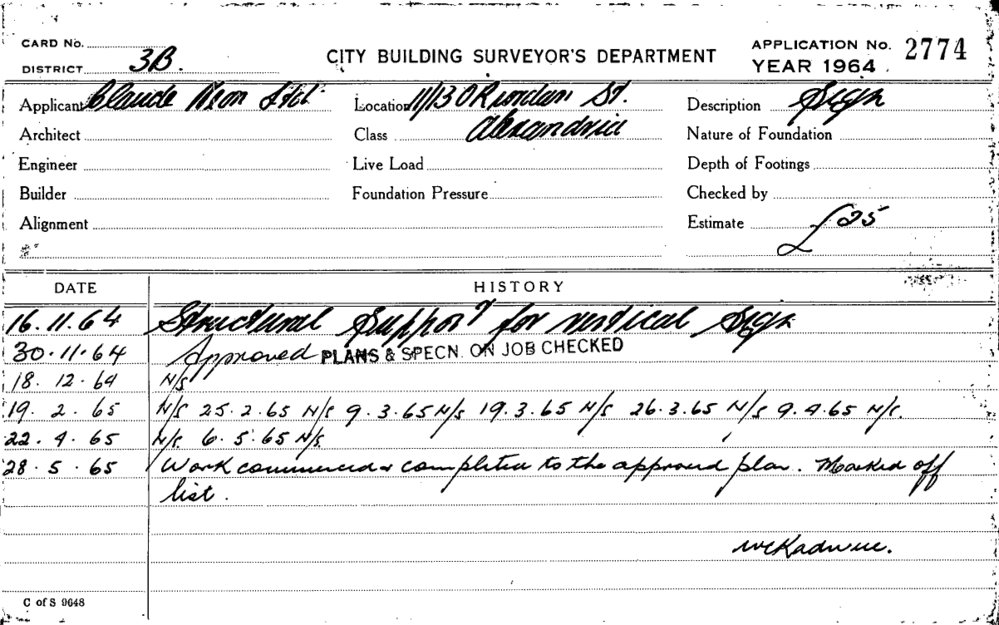 CARD No.
DISTRICT 3B.
CITY BUILDING SURVEYOR'S DEPARTMENT
APPLICATION No. 2774
YEAR 1964
Applicant Claude Neon Ltd.
Location 11/13 O'Riordan St.
Description Sign
Architect
Class Alexandria
Nature of Foundation
Engineer
Live Load
Depth of Footings
Builder
Foundation Pressure
Checked by
Alignment
Estimate £25
DATE HISTORY
16.11.64 Structural Support for vertical Sign
30.11.64 Approved PLANS & SPECN. ON JOB CHECKED
18.12.64 N/S
19.2.65 N/S 25.2.65 N/S 9.3.65 N/S 19.3.65 N/S 26.3.65 N/S 9.4.65 N/S.
22.4.65 N/S. 6.5.65 N/S.
28.5.65 Work commenced & completed to the approved plan. Marked off
list.
C of S 9648